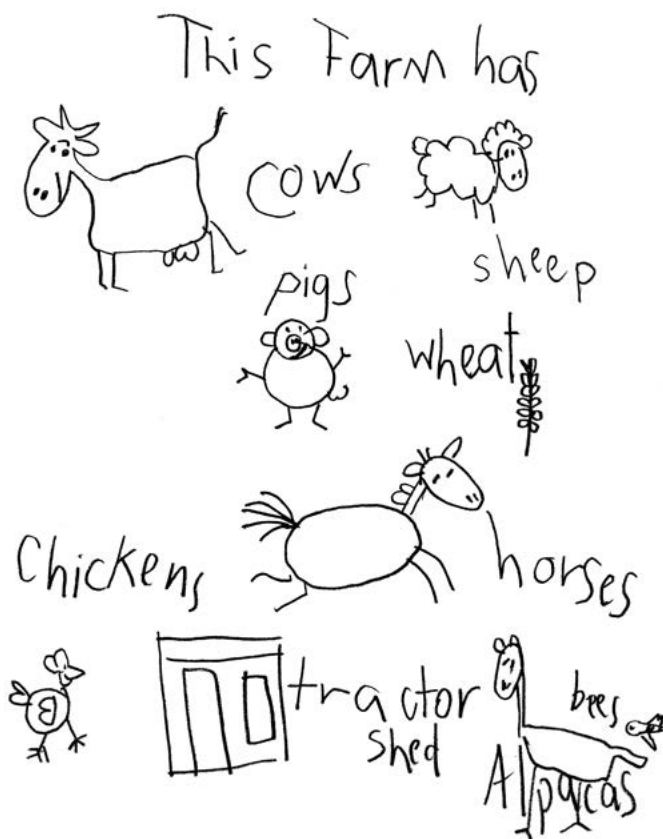 This Farm has
cows
sheep
pigs
wheat
Chickens
horses
tractor
shed
bees
Alpacas